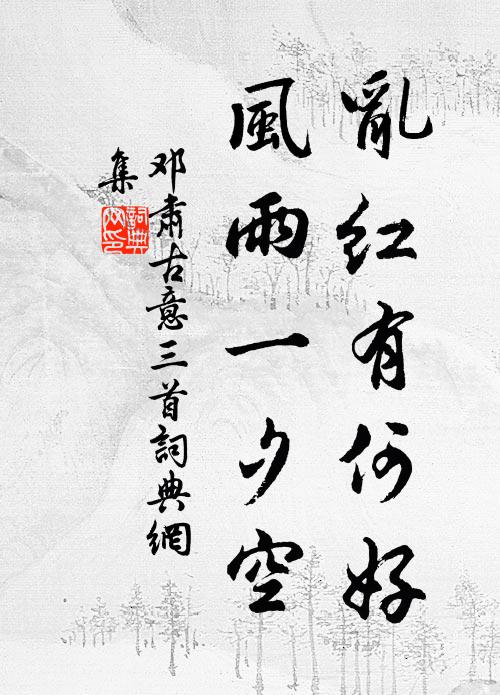 亂红有何好
風雨一夕空
邓肃古意三首詞典網
集
詞典
网印